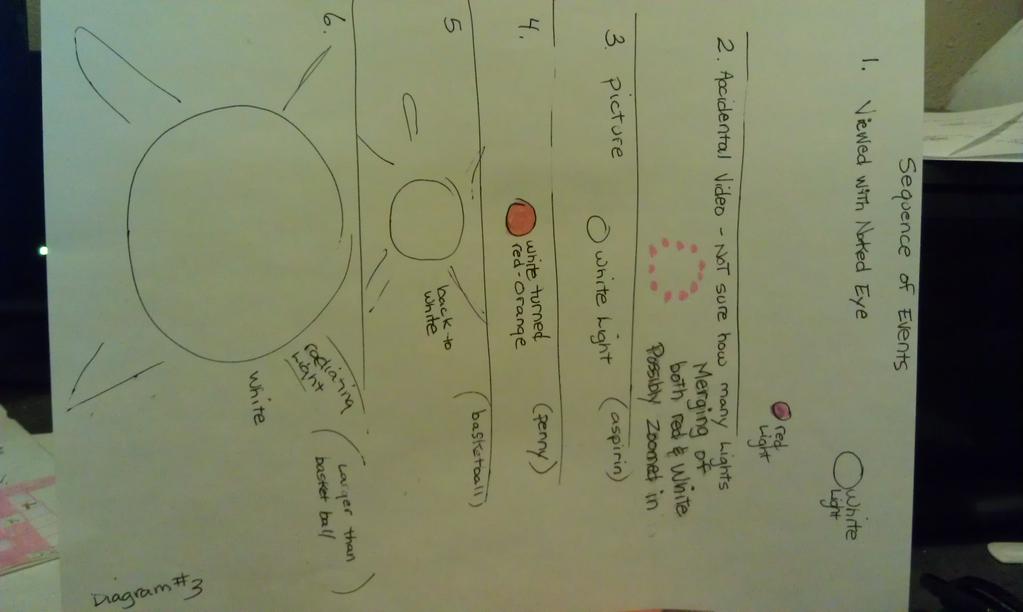 Sequence of Events
1. Viewed with Naked Eye
White
Light
red
light
2. Accidental Video - Not sure how many Lights
Merging of
both red & White
Possibly Zoomed in
3. Picture
White Light
(aspirin)
4.
White turned
red-orange
(penny)
5
back to
white
(basketball)
6.
radiating
Light
White
(Larger than
basket ball)
Diagram #3